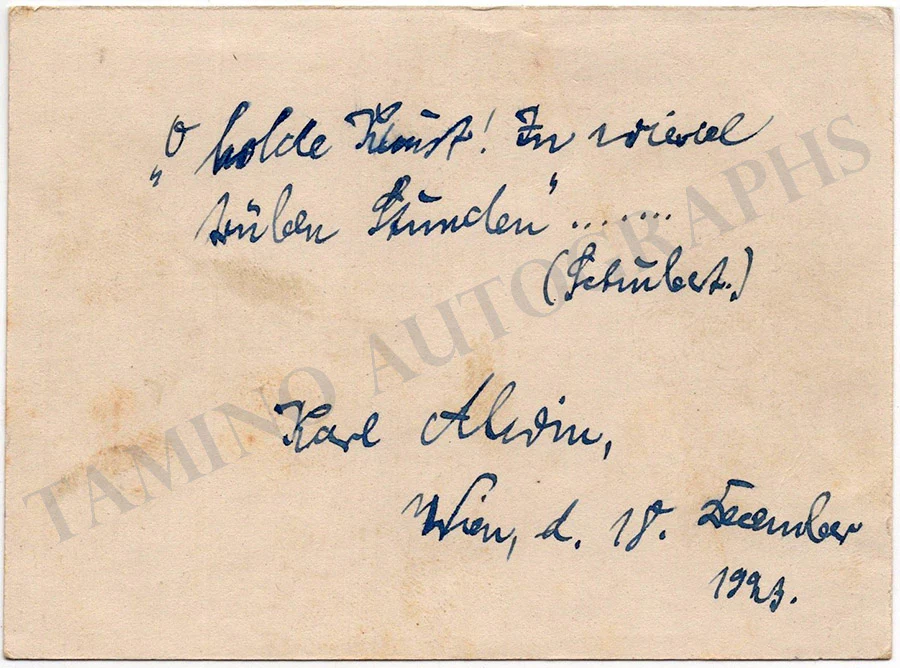 „O holde Kunst! In wieviel
trüben Stunden" .......
(Schubert.)
Karl Alwin,
Wien, d. 18. December
1923.
TAMINO AUTOGRAPHS